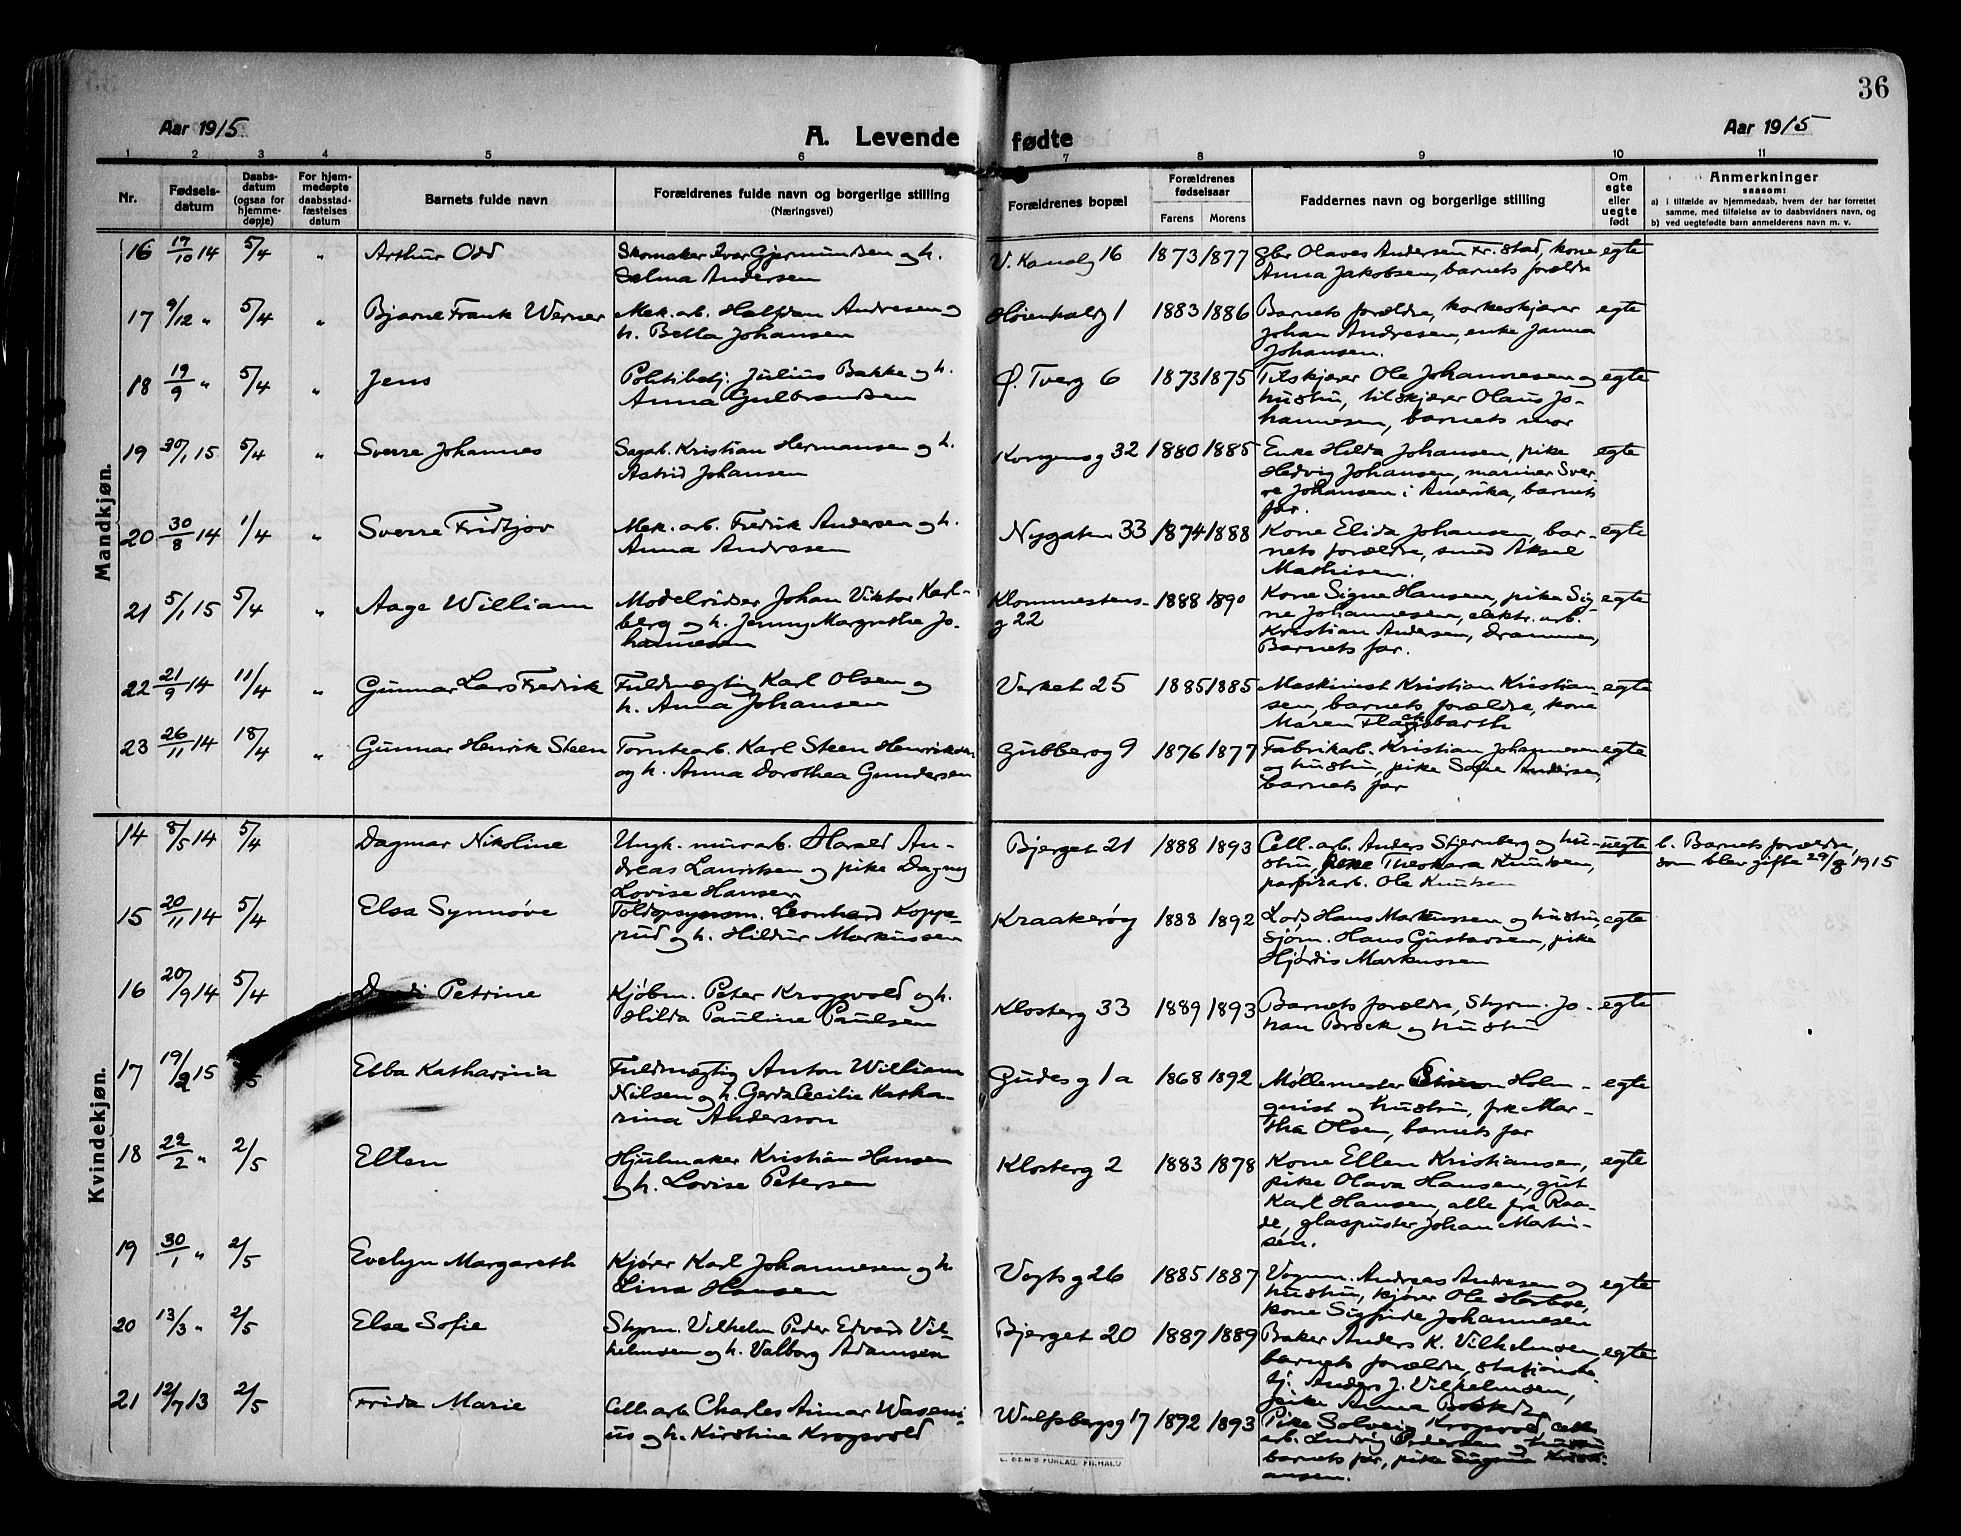 36
Aar 1915. A. Levende fødte Aar 1915
1 2 3 4 5 6 7 8 9 10 11
Nr. Fødsels-datum Daabs-datum (ogsaa for hjemme-døpte) For hjem-medøpte daabsstad-fæstelses datum Barnets fulde navn Forældrenes fulde navn og borgerlige stilling (Næringsvei) Forældrenes bopæl Forældrenes fødselsaar Farens Morens Faddernes navn og borgerlige stilling Om egte eller uegte født Anmerkninger saasom:
a) i tilfælde av hjemmedaab, hvem der har forrettet samme, med tilføielse av to daabsvidners navn, og
b) ved uegtefødte barn anmelderens navn m. v.
Mandkjøn.
16 17/10 14 5/4 " Arthur Odd Skomaker Ivar Gjermundsen og h. V. Kanalg 16 1873 1877 Gbr Olaves Andersen Fr.stad, kone egte
Selma Andersen Anna Jakobsen, barnets forældre
17 9/12 " 5/4 " Bjarne Frank Werner Mek. arb. Halfdan Andresen og Høienhaldg 1 1883 1886 Barnets forældre, korkeskjærer egte
h. Betta Johansen Johan Andresen, enke Janna
Johansen.
18 19/9 " 5/4 " Jens Politibetj. Julius Bakke og h. Ø. Tverg 6 1873 1875 Tilskjærer Ole Johannesen og egte
Anna Gulbrandsen hustru, tilskjærer Olaus Jo-
hannesen, barnets mor
19 30/1 15 5/4 " Sverre Johannes Sagarb. Kristian Hermansen og h. Kongensg 32 1880 1885 Enke Hilda Johansen, pike egte
Astrid Johansen Hedvig Johansen, mariner Sver-
re Johansen i Amerika, barnets
far.
20 30/8 14 1/4 " Sverre Fridtjov Mek. arb. Fredrik Andersen og h. Nygaten 33 1874 1888 Kone Elida Johansen, bar- egte
Anna Andresen nets forældre, smed Aksel
Mathisen.
21 5/1 15 5/4 " Aage William Modelsnidser Johan Viktor Karl- Klommestens- 1888 1890 Kone Signe Hansen, pike Sig- egte
berg og h. Jenny Margrethe Jo- g 22 ne Johannesen, elektr. arb.
hannessen Kristian Andersen, Drammen,
Barnets far.
22 21/9 14 11/4 " Gunnar Lars Fredrik Fuldmægtig Karl Olsen og Verket 25 1885 1885 Maskinist Kristian Kristian- egte
h. Anna Johansen sen, barnets forældre, kone
Maren
23 26/11 14 18/4 " Gunnar Henrik Steen Tomtearb. Karl Steen Henriksen Gubberog 9 1876 1877 Fabrikarb. Kristian Johannesen egte
og h. Anna Dorothea Gundersen og hustru, pike Sofie Andersen,
barnets far
Kvindekjøn.
14 8/5 14 5/4 Dagmar Nikoline Ungk. murarb. Harald An- Bjerget 21 1888 1893 Cell. arb. Anders Stjernberg og hu- uegte b. Barnets forældre,
dreas Lauritsen og pike Dagny stru, pike Theodora Knutsen, som blev gifte 29/8 1915
Lovise Hansen papirarb. Ole Knutsen
15 20/11 14 5/4 Elsa Synnøve Toldopsynsm. Leonhard Koppe- Kraakerøy 1888 1892 Lods Hans Markussen og hustru, egte
rud og h. Hildur Markussen Sjøm. Hans Gustavsen, pike
Hjørdis Markussen
16 20/9 14 5/4 Petrine Kjøbm. Peter Krogsvold og h. Klosterg 33 1889 1893 Barnets forældre, Styrm. Jo- egte
Hilda Pauline Paulsen han Brock og hustru
17 19/2 15 Ebba Katharina Fuldmægtig Anton William Gudes g 1a 1868 1892 Møllemester Holm- egte
Nilsen og h. Gerda Cecilie Katha- quist og hustru, frk Mar-
rina Andersson tha Olsen, barnets far
18 22/2 " 2/5 Ellen Hjulmaker Kristian Hansen Klosterg 2 1883 1878 Kone Ellen Kristiansen, egte
og h. Lovise Petersen pike Olava Hansen, gut
Karl Hansen, alle fra Raa-
de, glaspuster Johan Martin-
sen.
19 30/1 " 2/5 Evelyn Margareth Kjører Karl Johannesen og h Vogtsg 26 1885 1887 Vognm. Andreas Andresen og egte
Lina Hansen hustru, kjører Ole
kone Johannesen
20 13/3 " 2/5 Elsa Sofie Styrm. Vilhelm Peter Edvard Vil- Bjerget 20 1887 1889 Baker Anders K. Vilhelmsen, egte
helmsen og h. Valborg Adamsen barnets forældre,
tj. Anders J. Vilhelmsen,
pike Anna
21 12/7 13 2/5 Frida Marie Cell arb Charles Waseni- Wulfsbergsg 17 1892 1893 Pike Solveig Krogsvold, cell.
us og h. Kirstine Krogsvold arb. Ludvig Pedersen og hustru
barnets far, pike Signora Kristi-
ansen.